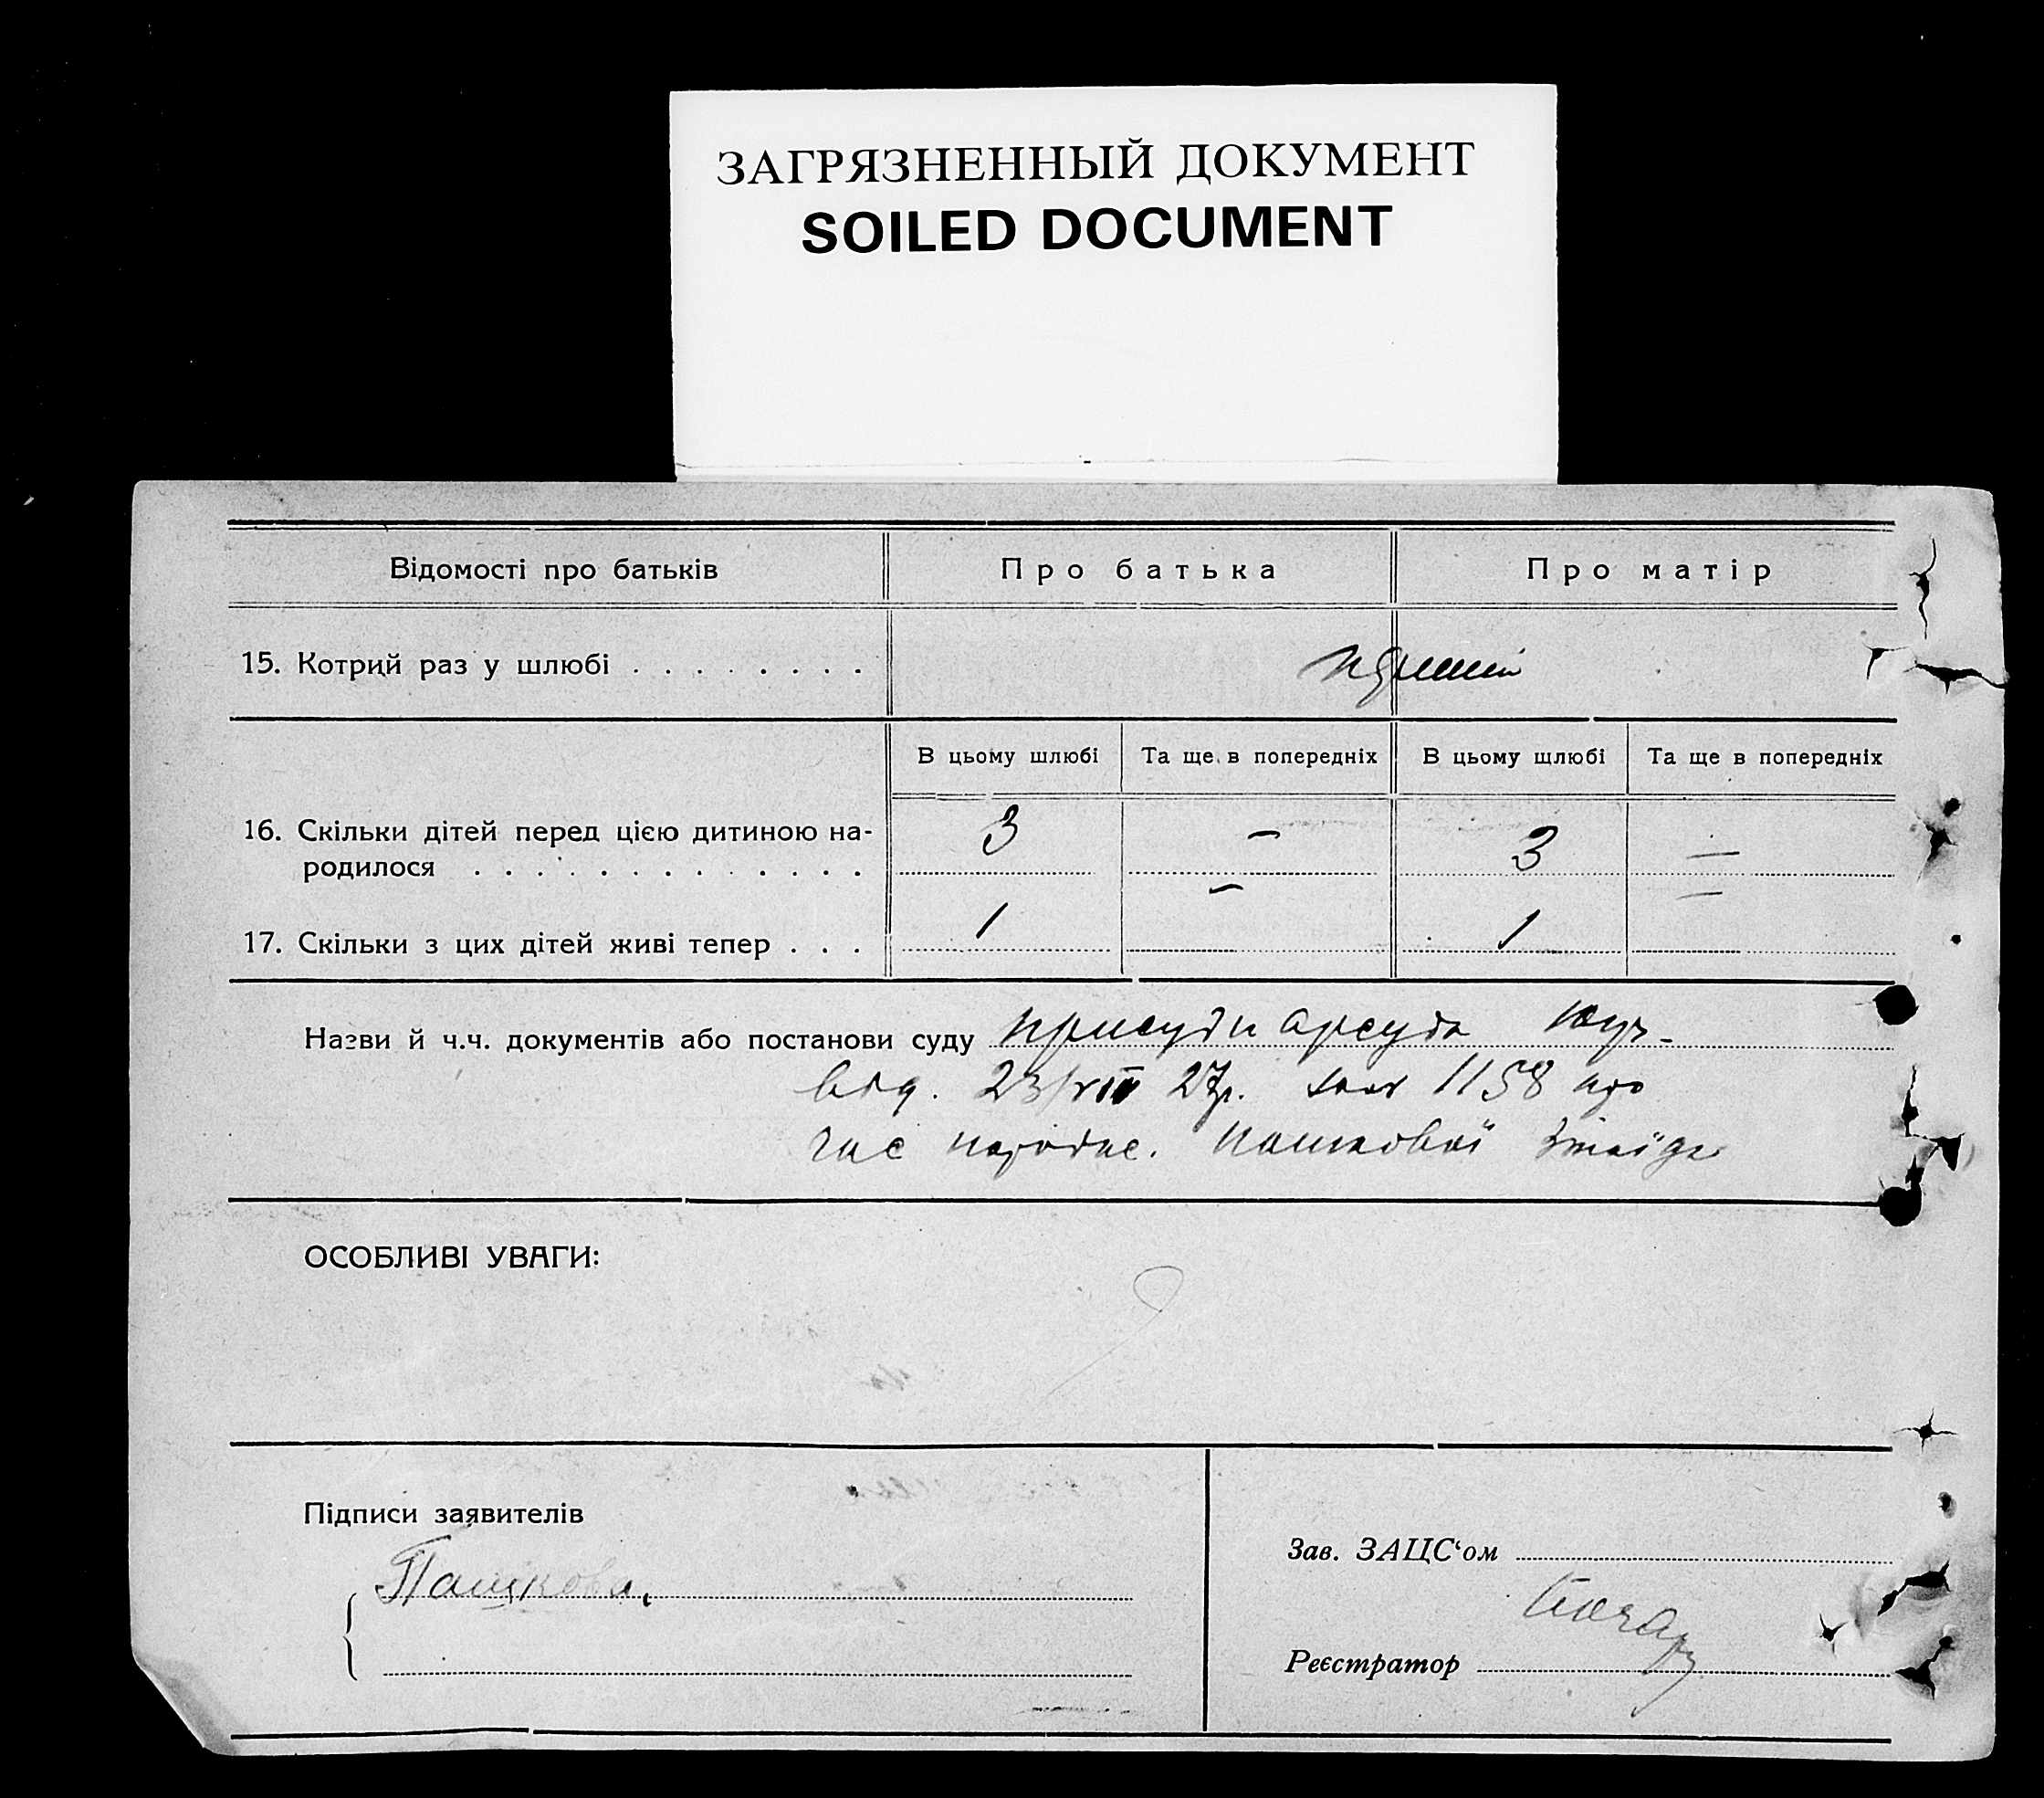 ЗАГРЯЗНЕННЫЙ ДОКУМЕНТ
SOILED DOCUMENT
Відомості про батьків Про батька Про матір
15. Котрий раз у шлюбі . . . . . . . .
В цьому шлюбі Та ще в попередніх В цьому шлюбі Та ще в попередніх
16. Скільки дітей перед цією дитиною на- 3 — 3 —
родилося . . . . . . . . . . . . .
17. Скільки з цих дітей живі тепер . . . 1 — 1 —
Назви й ч.ч. документів або постанови суду присуди
від. 23/VIII 27р. 1158 про
час
ОСОБЛИВІ УВАГИ:
Підписи заявителів
Зав. ЗАЦС‘ом
Пашкова
Реєстратор